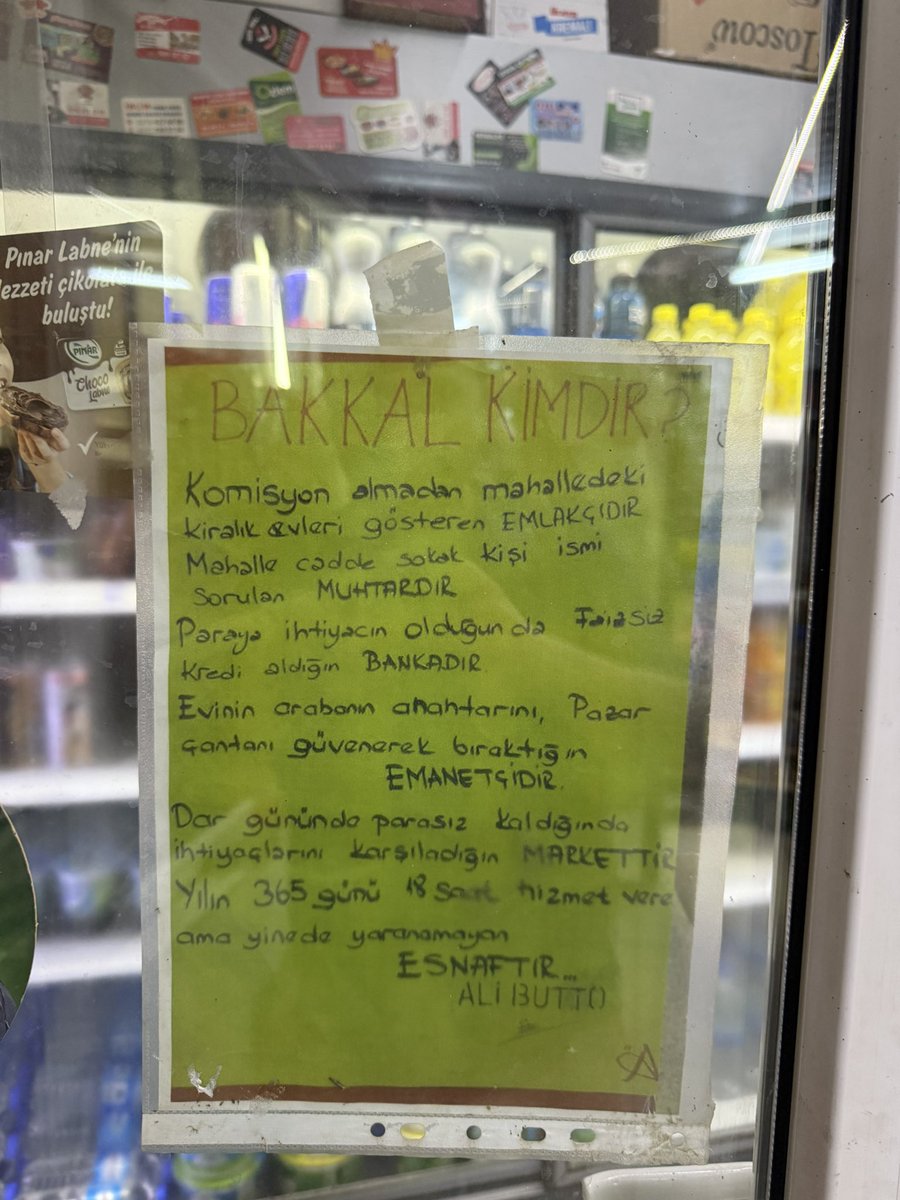 Moscow
Pınar Labne'nin
lezzeti çikolata ile
buluştu!
PINAR
Choco
Labne
BAKKAL KİMDİR?
Komisyon almadan mahalledeki
kiralık evleri gösteren EMLAKÇIDIR
Mahalle cadde sokak kişi ismi
sorulan MUHTARDIR
Paraya ihtiyacın olduğunda Faizsiz
kredi aldığın BANKADIR
Evinin arabanın anahtarını, Pazar
çantanı güvenerek bıraktığın
EMANETÇİDİR.
Dar gününde parasız kaldığında
ihtiyaçlarını karşıladığın MARKETTİR
Yılın 365 günü 18 saat hizmet vere
ama yinede yaranamayan
ESNAFTIR...
ALİ BUTTO